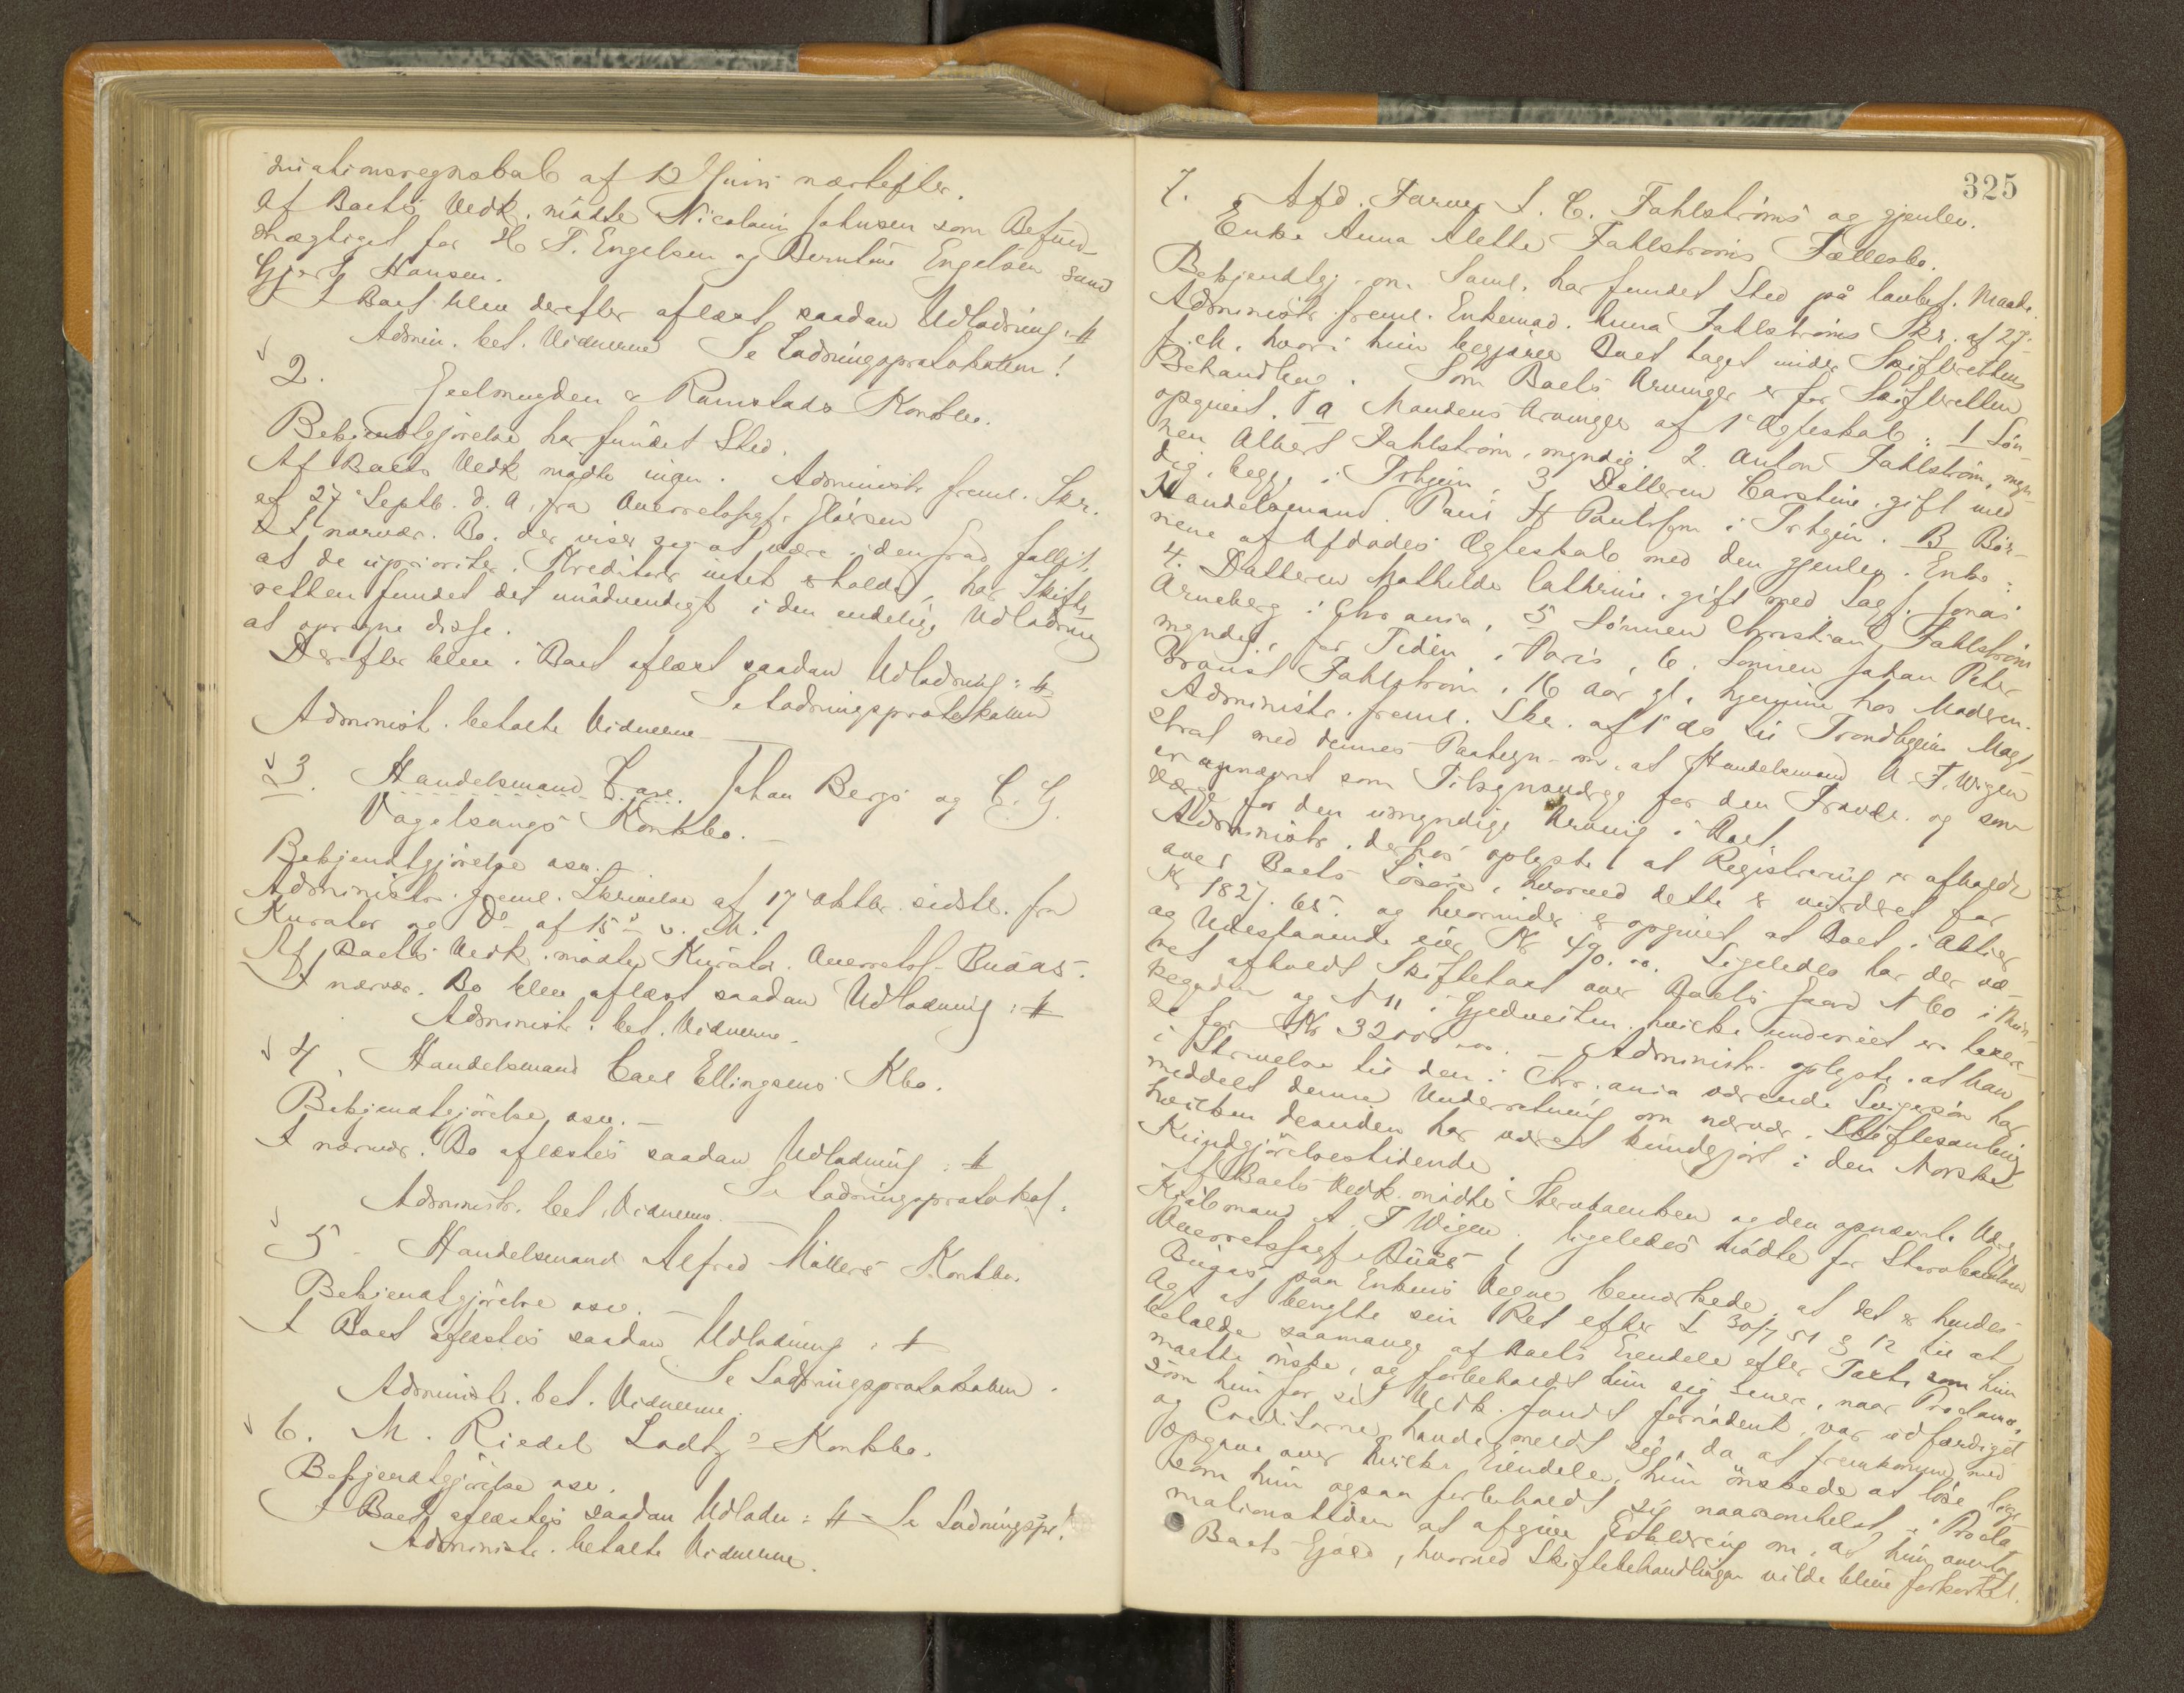 miationsregnskab af 12 Juni næstefter.
Af Boets Vedk. mødte Nicolai Johnsen som Befuld-
mægtiget for H. T. Engelsen og Berntine Engelsen samt
Gjert Hansen.
I Boet blev derefter aflæst saadan Udlodning: #
Se Lodningsprotokollen!
Admin. bet. Vidnerne
2. Geelmuyden & Ramstads Konkbo.
Bekjendtgjørelse har fundet Sted.
Af Boets Vedk mødte ingen. Administr freml. Skr.
af 27 Septb. d. A. fra Overretssagf.
I nærvær. Bo. der viser sig at være i den Grad fallit,
at de upriorite. Kreditorer intet erholder, har Skifte-
retten fundet det unødvendigt i den endelig Udlodning
at opregne disse.
Derefter blev i Boet aflæst saadan Udlodning: #
Se Lodningsprotokollen
Administ. betalte Vidnerne
3. Handelsmand Johan Bergs og C. G.
Vogelsangs Konkbo.
Bekjendtgjørelse osv.
Administr. freml. Skrivelse af 17 Oktbr. sidstl. fra
Kurator og Do af 15de d. M.
Af Boets Vedk. mødte Kurator Overretssf. Buaas.
I nærvær. Bo blev aflæst saadan Udlodning: #
Administr. bet. Vidnerne.
4. Handelsmand Carl Ellingsens Kbo.
Bekjendtgjørelse osv.
I nærvær. Bo aflæstes saadan Udlodning: #
Se Lodningsprotokol.
Administr. bet. Vidnerne.
5. Handelsmand Alfred Møllers Konkbo.
Bekjendtgjørelse osv.
I Boet aflæstes saadan Udlodning: #
Se Lodningsprotokollen.
Administr. bet. Vidnerne.
6. M. Riedel Konkbo.
Bekjendtgjørelse osv.
I Boet aflæstes saadan Udlodn: # - Se Lodningspr!
Administr. betalte Vidnerne.
325
7. Afd. Farver J. C. Fahlstrøms og gjenlev.
Enke Anna Alette Fahlstrøms Fællesbo.
Bekjendtgj. om Saml. har fundet Sted på lovbef. Maade.
Administr. freml. Enkemad. Anna Fahlstrøms Skr. af 27
f. M. hvori hun begjærer Boet taget under Skifterettens
Behandling. Som Boets Arvinger er for Skifteretten
opgivet. a Mandens Arvinger af 1e Ægteskab: 1 Søn-
nen Albert Fahlstrøm, myndig. 2. Anton Fahlstrøm, myn-
dig, begge i Trhjem, 3 Datteren Carstine, gift med
Handelsmand H Paulssen i Trhjem. B Bør-
nene af Afdødes Ægteskab med den gjenlev. Enke:
4. Datteren Mathilde Cathrine, gift med Sagf. Jonas
Arneberg i Chr.ania, 5 Sønnen Christian Fahlstrøm
myndig, for Tiden i Paris, 6. Sønnen Johan Peter
Fahlstrøm, 16 Aar gl. hjemme hos Moderen.
Administr. freml. Skr. af 1 ds til Trondhjems Magi-
strat med dennes Paategn. om, at Handelsmand A. T. Wigen
er opnævnt som Tilsynsværge for den Fravær. og som
Værge for den umyndige Arving i Boet.
Administr. derhos oplyste, at Registrering er afholdt
over Boets Løsøre, hvorved dette er vurderet for
Kr 1827. 65. og hvorunder er opgivet at Boet i Aktier
og Udestaaende eier Kr 490. 00. Ligeledes har der væ-
ret afholdt Skiftetaxt over Boets Gaard N 60 i Mun-
kegaden og N 11 i Gjedveiten, hvilke undereet er taxe-
ret for Kr 32000.00. - Administr. oplyste, at han
i Skrivelse til den i Chr.ania værende Svigersøn har
meddelt denne Underretning om nærvær. Skiftesamling
hvilken desuden har været kundgjort i den Norske
Kundgjørelsestidende.
Af Boets Vedk. mødte Stervboenken og den opnævnte Værge
Kjøbmand A. T Wigen. Ligeledes mødte for Stervboenken
Overretssagf. Buaas
Buaas paa Enkens Vegne bemærkede, at det er hendes
Agt at benytte sin Ret efter L 30/7 51 § 12 til at
beholde saamange af Boets Eiendele efter Taxt, som hun
maatte ønske, og forbeholdt hun sig senere, naar Proclama,
som hun for sit Vedk. fandt fornødent, var udfærdiget
og Creditorne havde meldt sig, da at fremkomme med
Opgave over hvilke Eiendele, hun ønskede at løse lige-
som hun ogsaa forbeholdt sig naarsomhelst i Procla-
mationstiden at afgive Erklæring om, at hun overtog
Boets Gjæld, hvorved Skiftebehandlingen vilde blive forkortet.